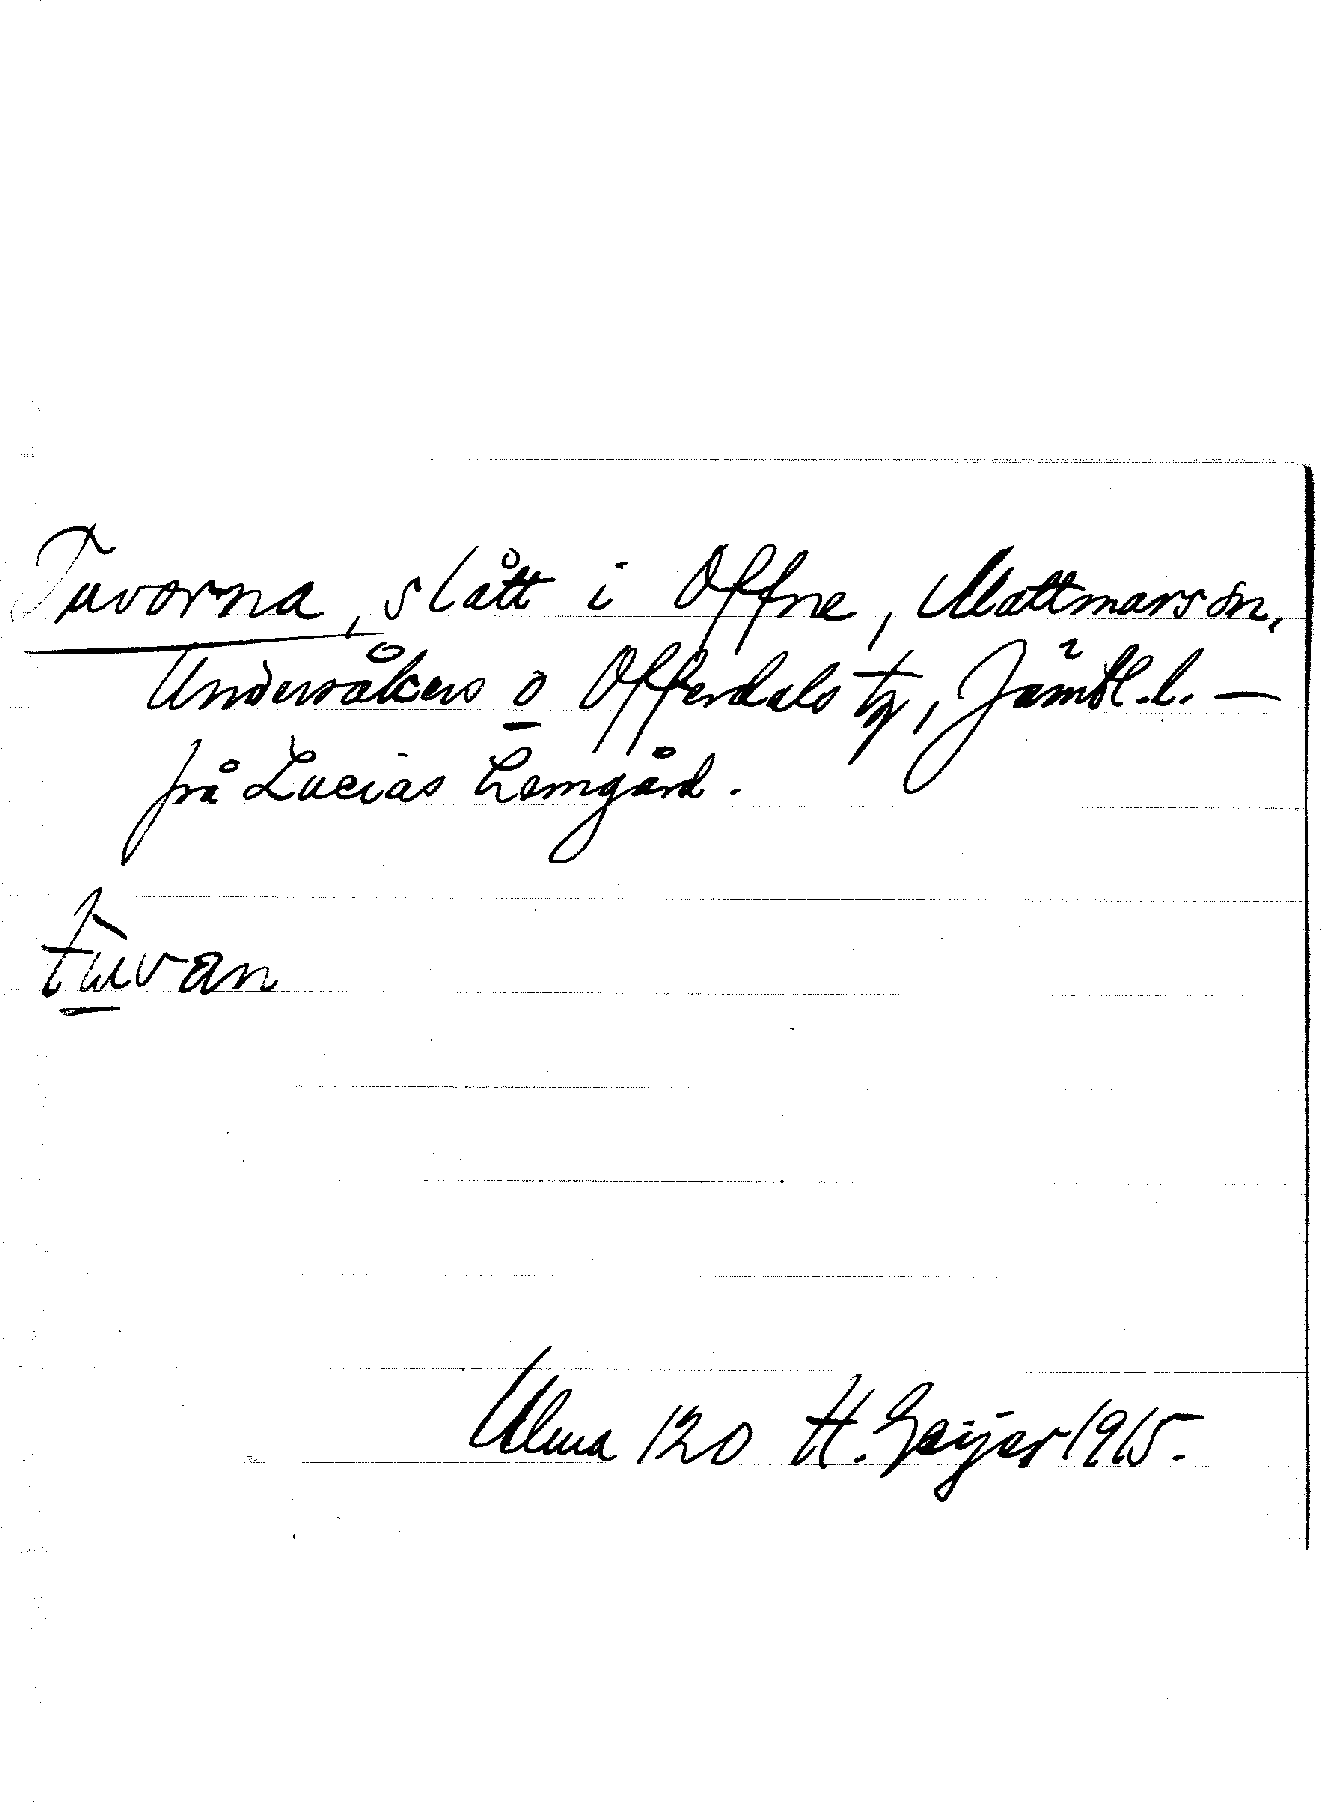 Tuvorna, slått i Offne, Mattmars sn,
Undersåkers o Offerdals tg, Jämtl. l. —
frå Lucias hemgård.
tuvan
Ulma 120 H. Geijer 1915.